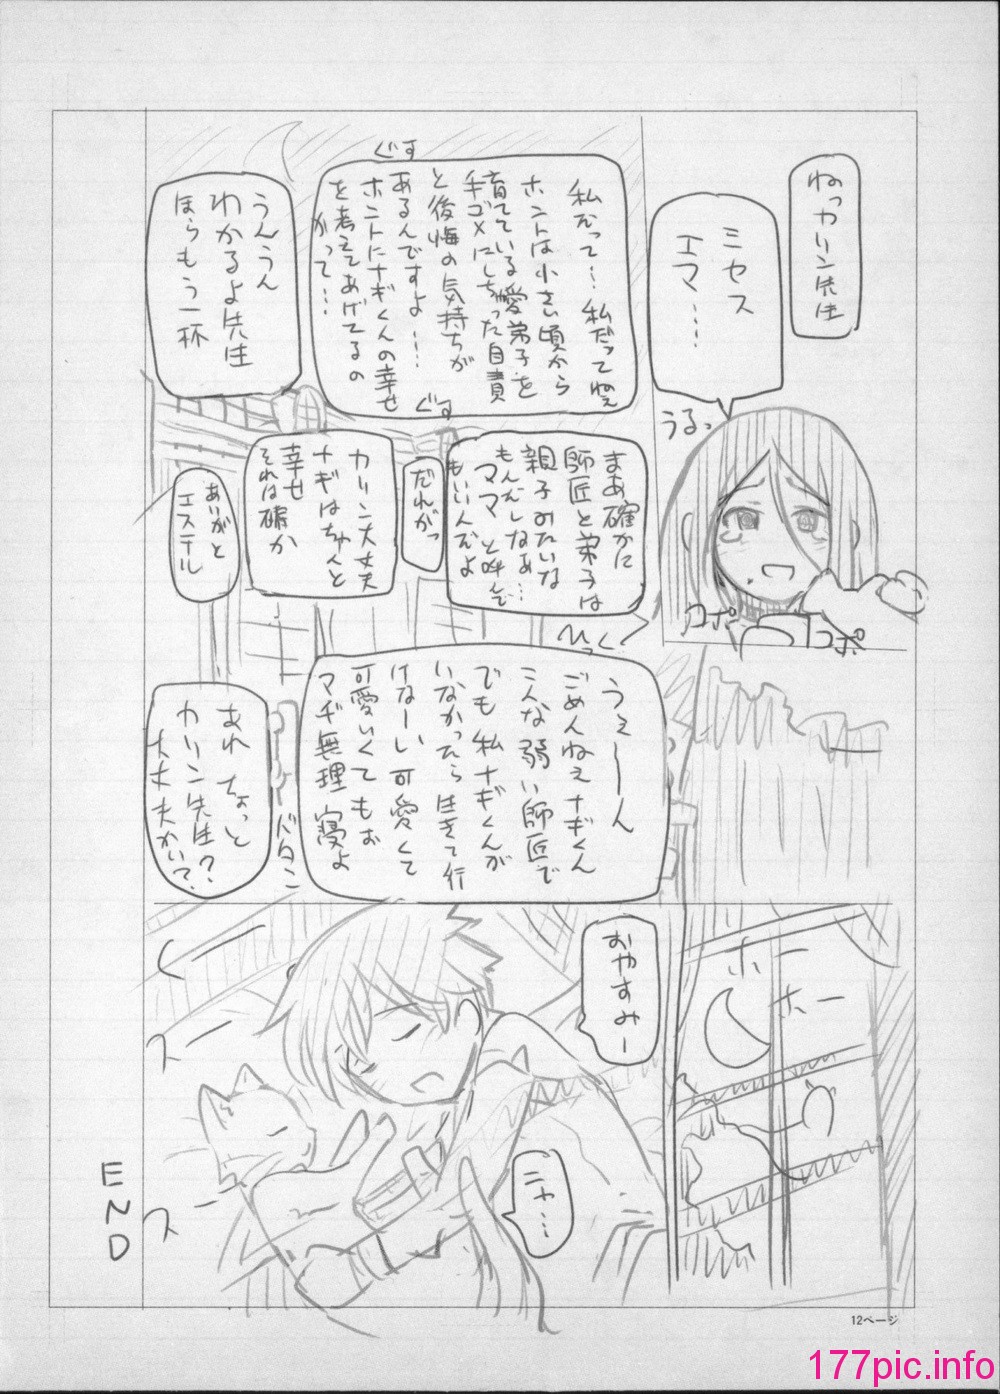 ねっカリン先生
ミセス
エマ…
うるっ
コポ
コポ
ぐす
私だって…私だってねぇ
ホントは小さい頃から
育てている愛弟子を
手ゴメにしちゃった自責
と後悔の気持ちが
あるんですよ……
ホントにナギくんの幸せ
を考えてあげてるの
かって…
ぐす
うんうん
わかるよ先生
ほらもう一杯
まあ確かに
師匠と弟子は
親子みたいな
もんだしなぁ…
ママと呼んで
もいいんだよ
だれがっ
カリン大丈夫
ナギはちゃんと
幸せ
それは確か
ありがと
エステル
ひっく
うぇーーん
ごめんねぇナギくん
こんな弱い師匠で
でも私ナギくんが
いなかったら生きて行
けなーい可愛くて
可愛いくてもぉ
マヂ無理寝よ
バタン
あれちょっと
カリン先生?
大丈夫かい?
ホーホー
おやすみー
ニャ…
くー
スー
スー
END
12ページ
177pic.info